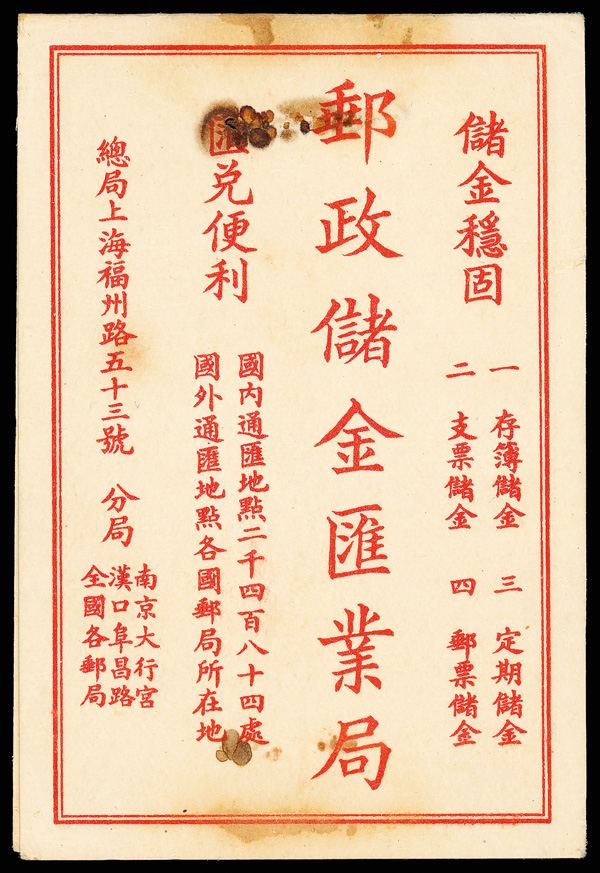 儲金穩固
一 存簿儲金 三 定期儲金
二 支票儲金 四 郵票儲金
郵政儲金匯業局
匯兌便利
國內通匯地點二千四百八十四處
國外通匯地點各國郵局所在地
總局上海福州路五十三號 分局
南京大行宮
漢口阜昌路
全國各郵局